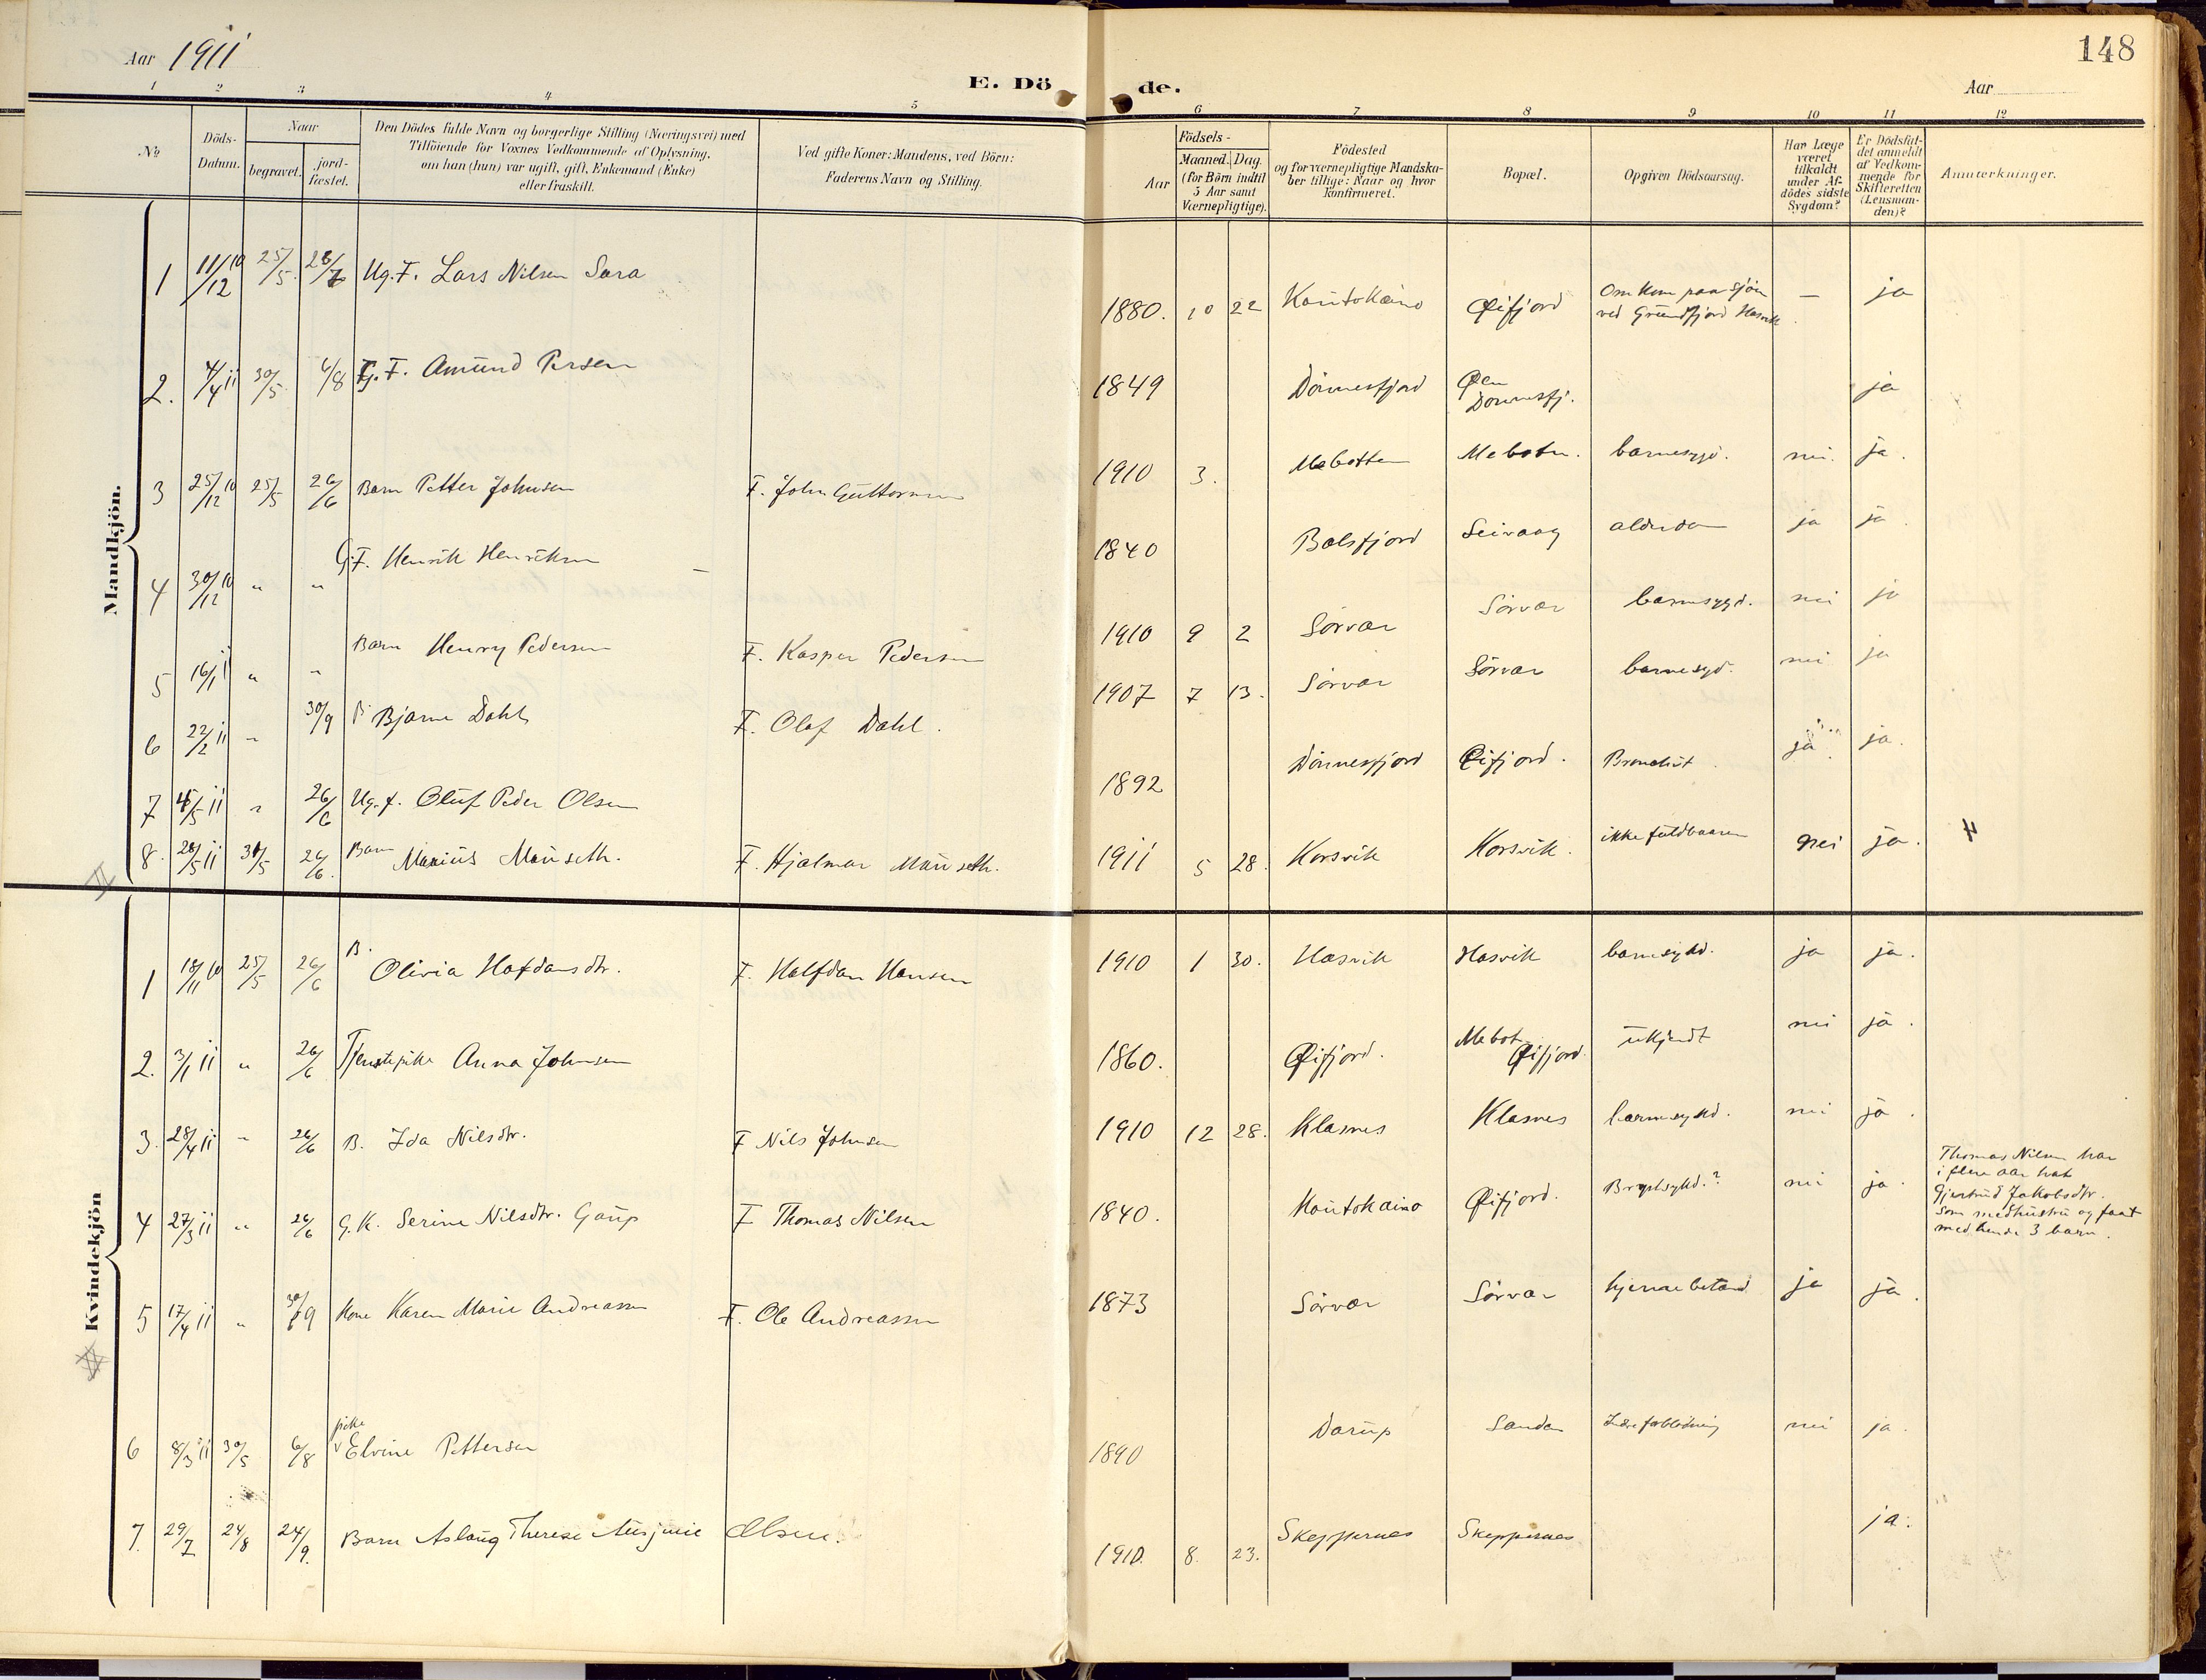 148
Aar 1911
E. Döde.
Aar
1 2 3 4 5 6 7 8 9 10 11 12
No
Döds-Datum.
Naar
begravet.
jord-fæstet.
Den Dödes fulde Navn og borgerlige Stilling (Næringsvei) med
Tilföiende for Voxnes Vedkommende af Oplysning,
om han (hun) var ugift, gift, Enkemand (Enke)
eller fraskilt.
Ved gifte Koner: Mandens, ved Börn:
Faderens Navn og Stilling.
Födsels-
Aar
Maaned. Dag.
(for Börn indtil
5 Aar samt
Værnepligtige).
Födested
og for værnepligtige Mandska-
ber tillige: Naar og hvor
konfirmeret.
Bopæl.
Opgiven Dödsaarsag.
Har Læge
været
tilkaldt
under Af-
dödes sidste
Sygdom?
Er Dödsfal-
det anmeldt
af Vedkom-
mende for
Skifteretten
(Lensman-
den)?
Anmærkninger.
Mandkjön.
1 11/12 10 25/5 Ug. F. Lars Nilsen Sara 1880. 10 22 Kautokæino Øifjord Omkom paa sjön ved Hasvik — ja
2. 4/4 11 30/5 6/8 F. Amund Persen 1849 Dönnesfjord Øen Dönnesfj. ja
3 25/12 10 25/5 26/6 Barn Petter Johnsen F. John Guttormsen 1910 3. Mebotten Mebotn. barnesygd. nei ja.
4 30/12 10 " " G. F. Henrik Henriksen 1840 Balsfjord Seivaag ja ja
5 16/1 11 " " Barn Henry Pedersen F. Kasper Pedersen 1910 9 2 Sörvær Sörvær barnesygd. nei ja
6 22/2 11 " 30/9 B. Bjarne Dahl F. Olaf Dahl. 1907 7 13. Sörvær Sörvær barnesygd. nei ja
7 11 " 26/6 Ug. f. Oluf Peder Olsen 1892 Dönnesfjord Øifjord. Bronchit ja. ja.
8. 28/5 11 26/6. Barn Marius Mauseth. F. Hjalmar Mauseth. 1911 5 28. Korsvik Korsvik. ikke fuldbaaren nei ja.
Kvindekjön
1 18/11 10 25/5 26/6 B. Olivia Hafdansdtr. F. Halfdan Hansen 1910 1 30. Hasvik Hasvik barnesykd. ja ja.
2. 3/1 11 " 26/6 Tjenstepike Anna Johnsen 1860. Øifjord. Mebot. Øifjord. ukjendt nei ja.
3. 28/4 11 " 26/6 B. Ida Nilsdtr. F Nils Johnsen 1910 12 28. Klasnes Klasnes barnesykd. nei ja.
4 27/3 11 " 26/6 G. K. Serine Nilsdtr. Gaup F Thomas Nilsen 1840. Kautokaino Øifjord. Brystsykd.? nei ja.
Thomas Nilsen har
i flere aar hat
Gjertrud Jakobsdtr.
som medhustru og faat
med hende 3 barn.
5 17/4 11 " Kone Karen Marie Andreassen F. Ole Andreassen 1873 Sörvær Sörvær hjernebetænd ja ja.
6 8/3 11 30/5 6/8 pike Elvine Pettersen 1890 Darup Sanden nei ja.
7. 29/7 24/8 24/9. Barn Aslaug Therese Olsen. 1910. 8. 23. Skeppernes Skeppernes ja.